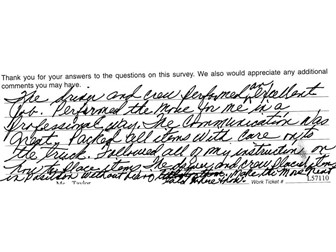 Thank you for your answers to the questions on this survey. We also would appreciate any additional
comments you may have.
The driver and crew performed an excellent
Job. Performed the move for me in a
Professional way. The Communication was
Great, Packed all items with care onto
the truck. Followed all of my instructions on
how to place items. The driver and crew placed items
in Position without
Ms. Taylor
Work Ticket #
L57110